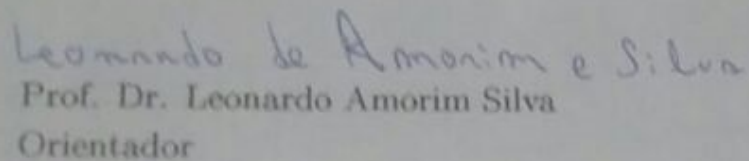 Leonardo de Amorim e Silva
Prof. Dr. Leonardo Amorim Silva
Orientador